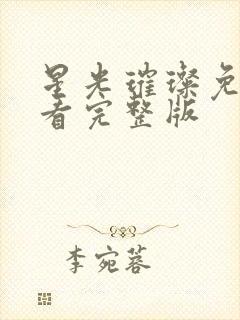 星光璀璨免
看完整版
李宛蓉